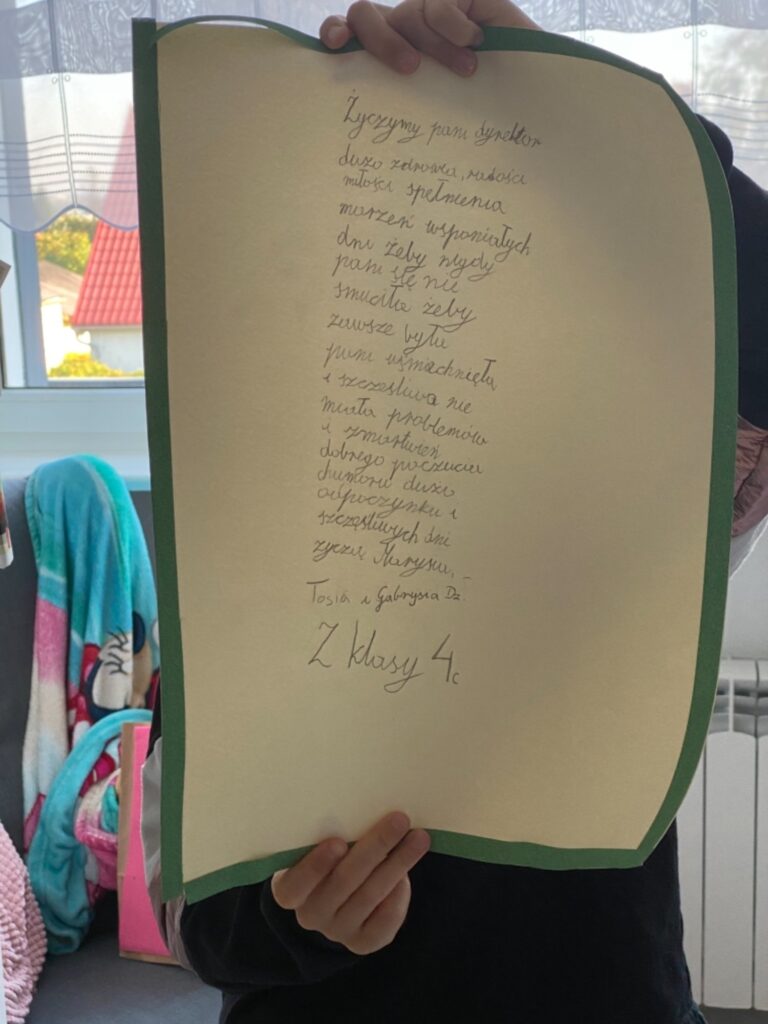 Życzymy pani dyrektor
dużo zdrowia, radości
miłości spełnienia
marzeń wspaniałych
dni żeby nigdy
pani się nie
smuciła żeby
zawsze była
pani uśmiechnięta
i szczęśliwa nie
miała problemów
i zmartwień
dobrego poczucia
humoru dużo
odpoczynku i
szczęśliwych dni
życzą Marysia,
Tosia i Gabrysia Dz.
Z klasy 4c